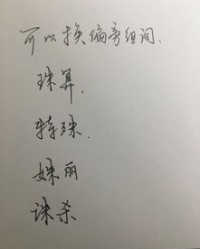 可以换偏旁组词.
珠算.
特殊.
姝丽
诛杀